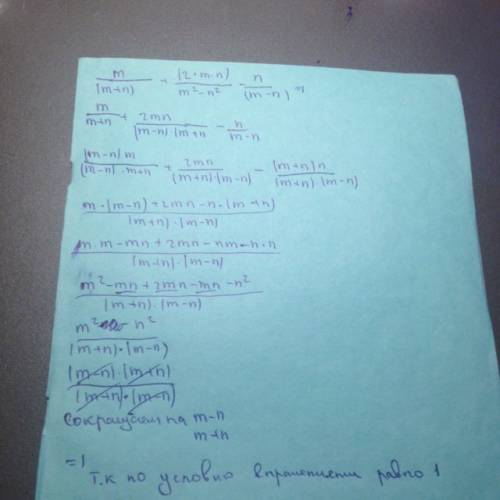 m/(m+n) + (2·m·n)/(m²-n²) - n/(m-n) =
m/(m+n) + 2mn/((m-n)(m+n)) - n/(m-n)
(m-n)m/((m-n)·m+n) + 2mn/((m+n)·(m-n)) - (m+n)n/((m+n)·(m-n))
(m·(m-n)+2mn-n·(m+n))/((m+n)·(m-n))
(m·m-mn+2mn-nm-n·n)/((m+n)·(m-n))
(m²-mn+2mn-mn-n²)/((m+n)·(m-n))
(m²-n²)/((m+n)·(m-n))
((m-n)·(m+n))/((m+n)·(m-n))
сокращаем на m-n
m+n
=1
т.к по условию равно 1